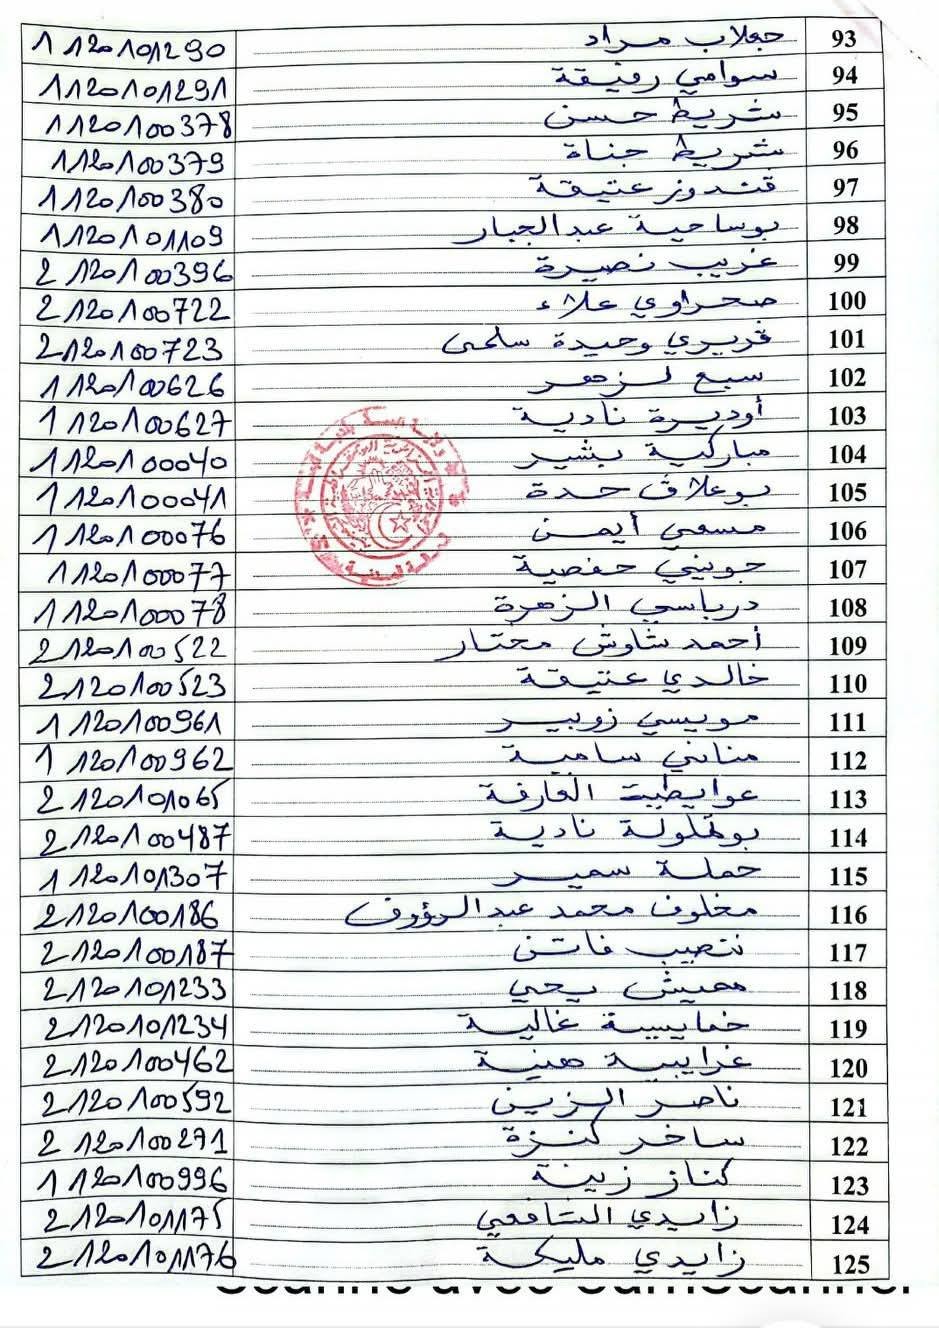 93 جعلاب مراد 1120101290
94 سوامي رفيقة 1120101291
95 شريط حسن 1120100378
96 شريط جناة 1120100379
97 قندوز عتيقة 1120100380
98 بوساحية عبد الجبار 1120101109
99 غريب نصيرة 2120100396
100 صحراوي علاء 2120100722
101 قريري وحيدة سلمى 2120100723
102 سبع لزهر 1120100626
103 أوديرة نادية 1120100627
104 مباركية بشير 1120100040
105 بوعلاق حدة 1120100041
106 مسعي أيمن 1120100076
107 جونيني حفصية 1120100077
108 درباسي الزهرة 1120100078
109 أحمد شاوش مختار 2120100522
110 خالدي عتيقة 2120100523
111 مويسي زوبير 1120100961
112 مناني سامية 1120100962
113 عوايطية العارفة 2120101065
114 بوهلولة نادية 2120100487
115 حملة سمير 1120101307
116 مخلوف محمد عبد الرؤوف 2120100186
117 نصيب فاتن 2120100187
118 معيش يحي 2120101233
119 خمايسية غالية 2120101234
120 غرايبية هنية 2120100462
121 ناصر الزين 2120100592
122 ساخر كنزة 2120100271
123 كناز زينة 1120100996
124 زايدي الشافعي 2120101175
125 زايدي مليكة 2120101176